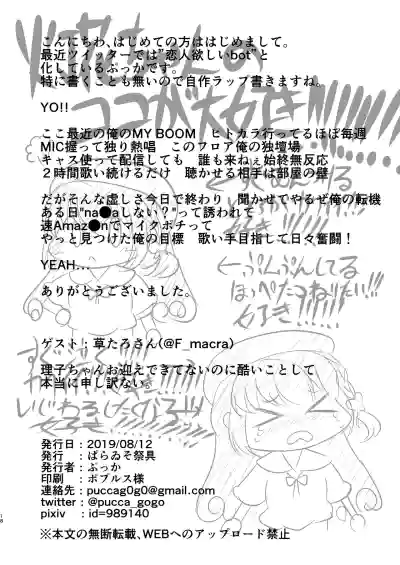 こんにちわ、はじめての方ははじめまして。
最近ツイッターでは"恋人欲しいbot"と
化しているぷっかです。
特に書くことも無いので自作ラップ書きますね。
YO!!
ここ最近の俺のMY BOOM　ヒトカラ行ってるほぼ毎週
MIC握って独り熱唱　このフロア俺の独壇場
キャス使って配信しても　誰も来ねぇ始終無反応
２時間歌い続けるだけ　聴かせる相手は部屋の壁
だがそんな虚しさ今日で終わり　聞かせてやるぜ俺の転機
ある日"na●aしない？"って誘われて
速Amaz●nでマイクポチって
やっと見つけた俺の目標　歌い手目指して日々奮闘！
YEAH...
ありがとうございました。
ゲスト：草たろさん(@F_macra)
理子ちゃんお迎えできてないのに酷いことして
本当に申し訳ない。
発行日：2019/08/12
発行　：ばらゐそ祭具
発行者：ぷっか
印刷　：ポプルス様
連絡先：puccag0g0@gmail.com
twitter：@pucca_gogo
pixiv　：id=989140
※本文の無断転載、WEBへのアップロード禁止
ココが大好き!!!
←ぷんぷんしてる
ほっぺたつねりたい!!
好き!!!!
18